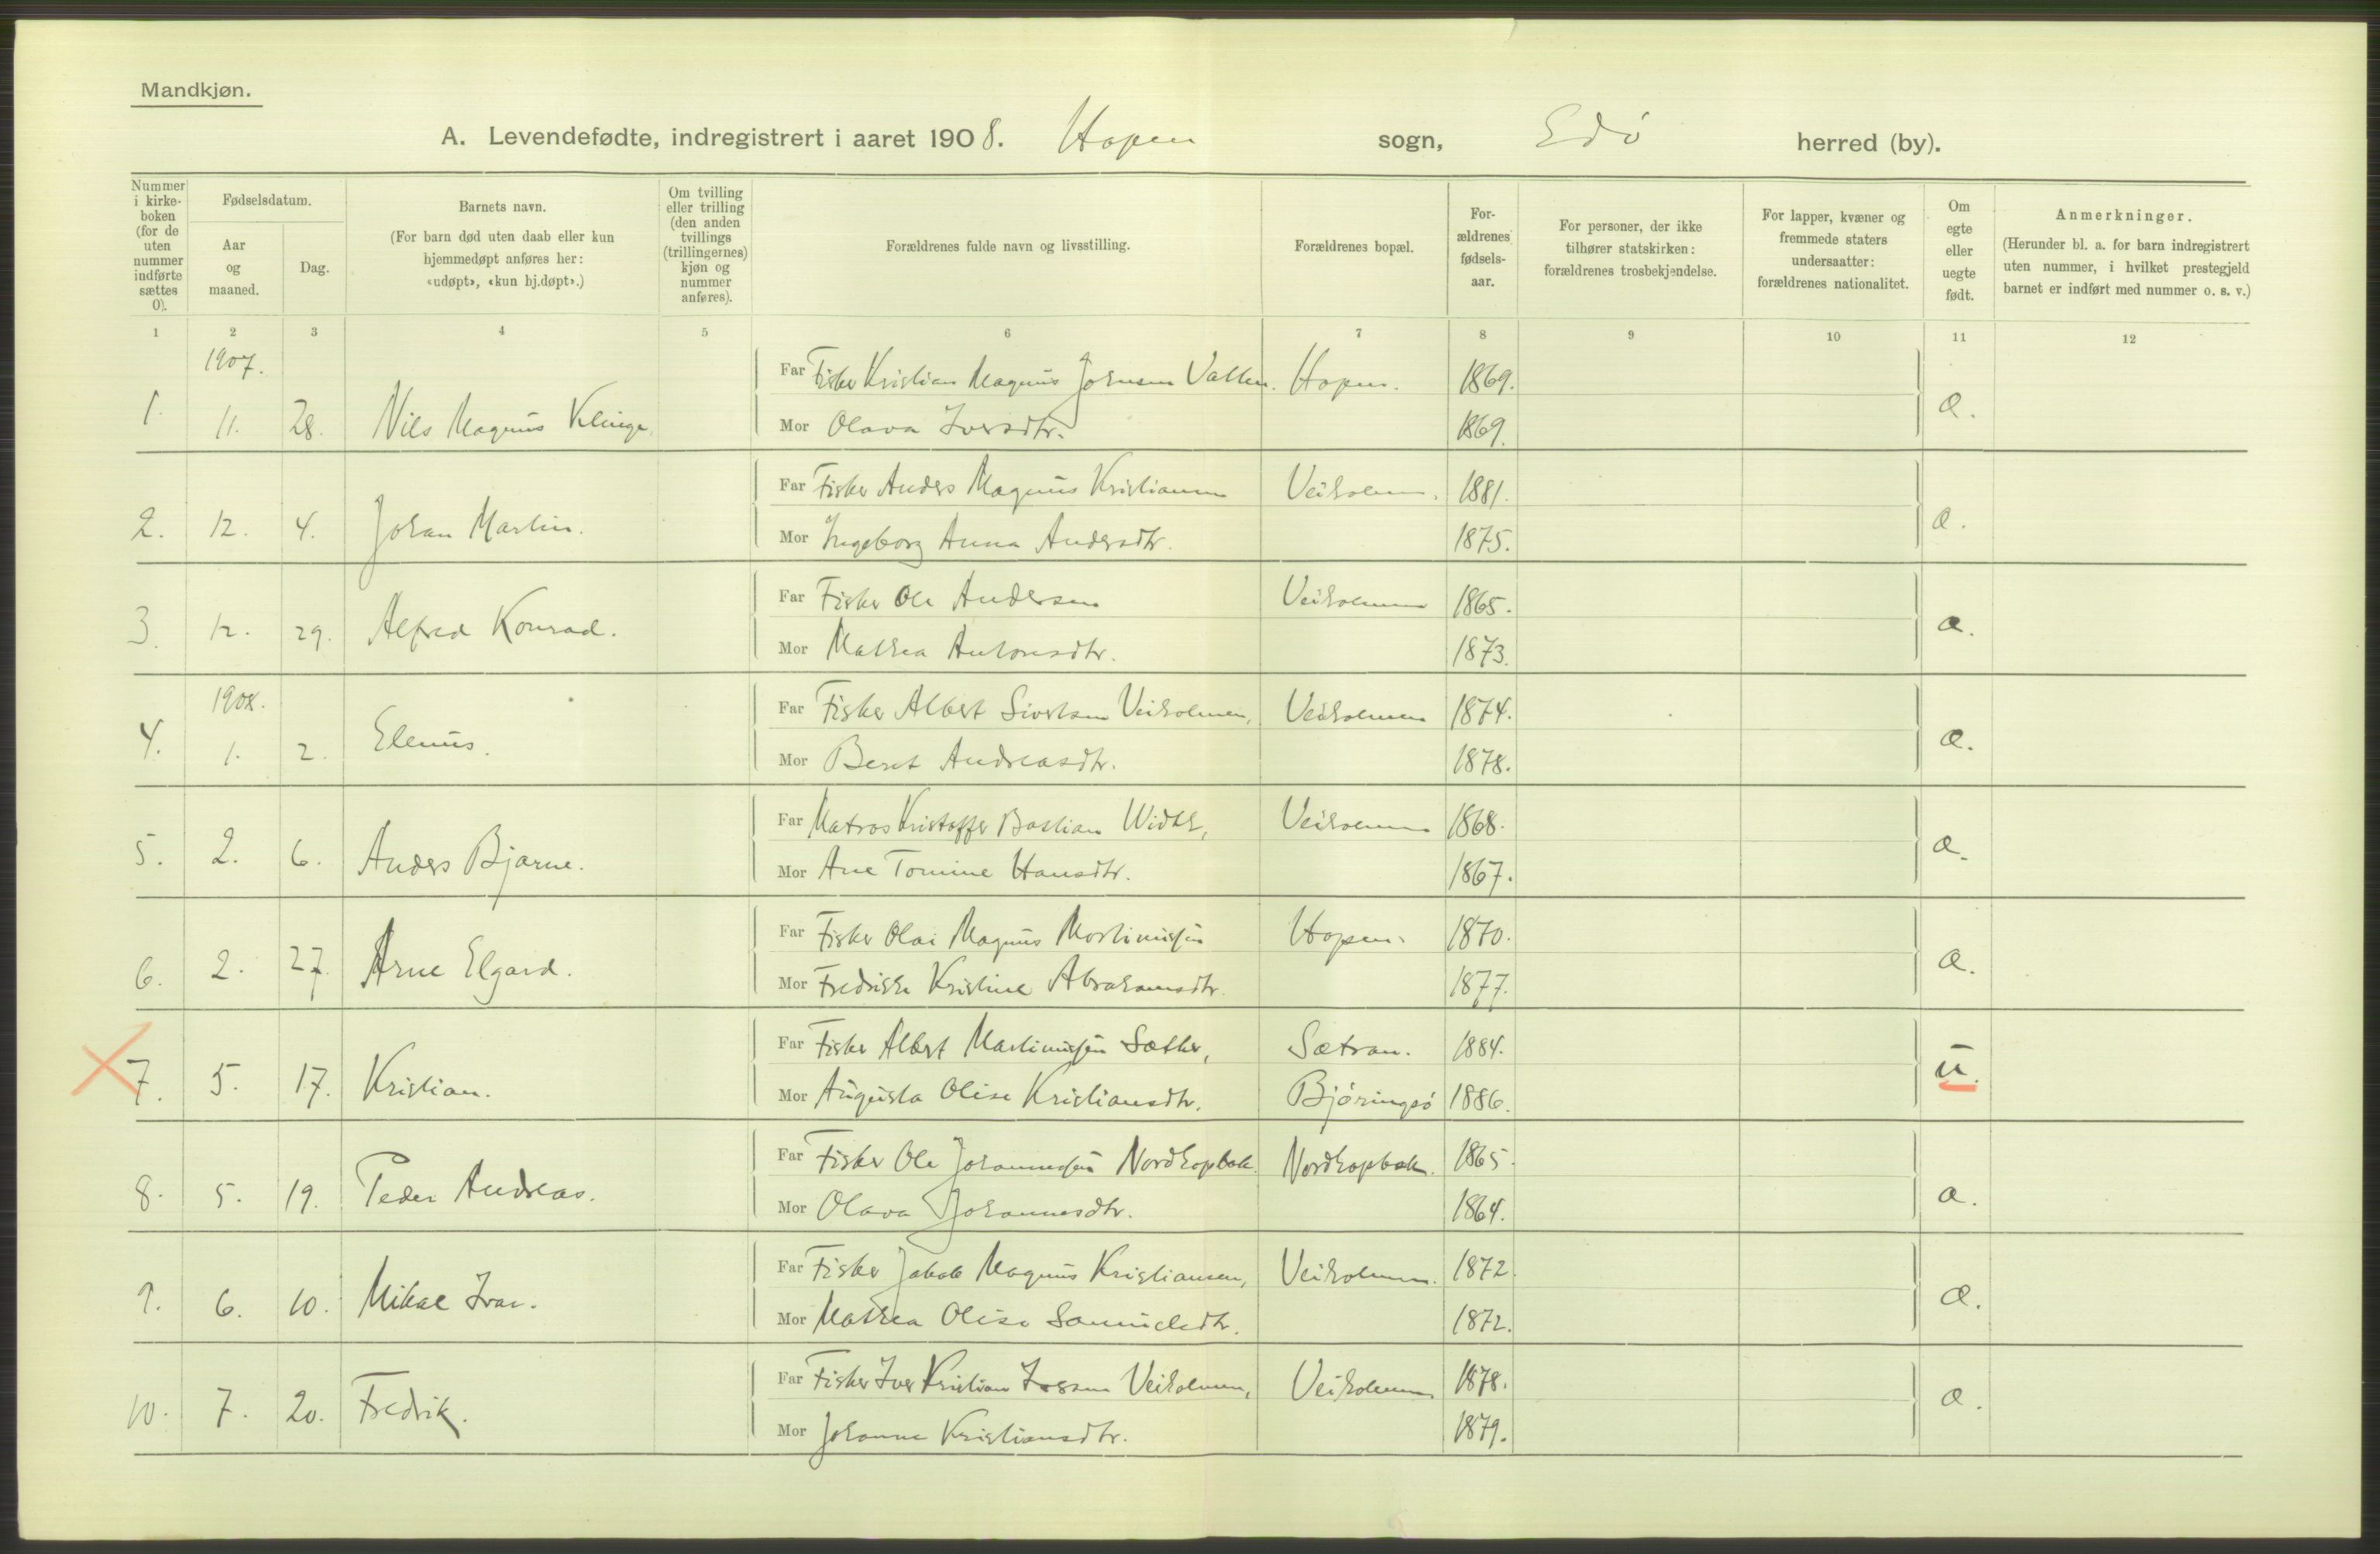 Mandkjøn.
A. Levendefødte, indregistrert i aaret 1908. Hopen sogn, Edø herred (by).
Nummer i kirke-boken (for de uten nummer indførte sættes 0).
Fødselsdatum.
Aar og maaned.
Dag.
Barnets navn.
(For barn død uten daab eller kun hjemmedøpt anføres her: «udøpt», «kun hj.døpt».)
Om tvilling eller trilling (den anden tvillings (trillingernes) kjøn og nummer anføres).
Forældrenes fulde navn og livsstilling.
Forældrenes bopæl.
For-ældrenes fødsels-aar.
For personer, der ikke tilhører statskirken: forældrenes trosbekjendelse.
For lapper, kvæner og fremmede staters undersaatter: forældrenes nationalitet.
Om egte eller uegte født.
Anmerkninger.
(Herunder bl. a. for barn indregistrert uten nummer, i hvilket prestegjeld barnet er indført med nummer o. s. v.)
1 2 3 4 5 6 7 8 9 10 11 12
1907.
Far Fisker Kristian Magnus Johnsen Vatten. Hopen. 1869.
1. 11. 28. Nils Magnus Klinge. Mor Olava Iversdtr. 1869. a.
Far Fisker Anders Magnus Kristiansen Veiholmen. 1881.
2. 12. 4. Johan Martin. Mor Ingeborg Anna Andersdtr. 1875. a.
Far Fisker Ole Andersen Veiholmen 1865.
3. 12. 29. Alfred Konrad. Mor Mathea Antonsdtr. 1873. a.
1908.
Far Fisker Albert Sivertsen Veiholmen, Veiholmen 1874.
4. 1. 2. Elenus. Mor Beret Andreasdtr. 1878. a.
Far Matros Kristoffer Bastian Width, Veiholmen 1868.
5. 2. 6. Anders Bjarne. Mor Ane Tomine Hansdtr. 1867. a.
Far Fisker Olai Magnus Martinussen Hopen. 1870.
6. 2. 27. Arne Elgard. Mor Fredrikke Kristine Abrahamsdtr. 1877. a.
Far Fisker Albert Martinussen Sæther, Sætran. 1884.
7. 5. 17. Kristian. Mor Augusta Olise Kristiansdtr. Bjøringsø 1886. u.
Far Fisker Ole Johannessen Nordhopbak Nordhopbak. 1865.
8. 5. 19. Peder Andreas. Mor Olava Johannesdtr. 1864. a.
Far Fisker Jakob Magnus Kristiansen, Veiholmen. 1872.
9. 6. 10. Mikal Ivar. Mor Mathea Olise Samuelsdtr. 1872. a.
Far Fisker Iver Kristian Iversen Veiholmen, Veiholmen 1878.
10. 7. 20. Fredrik. Mor Johanne Kristiansdtr. 1879. a.